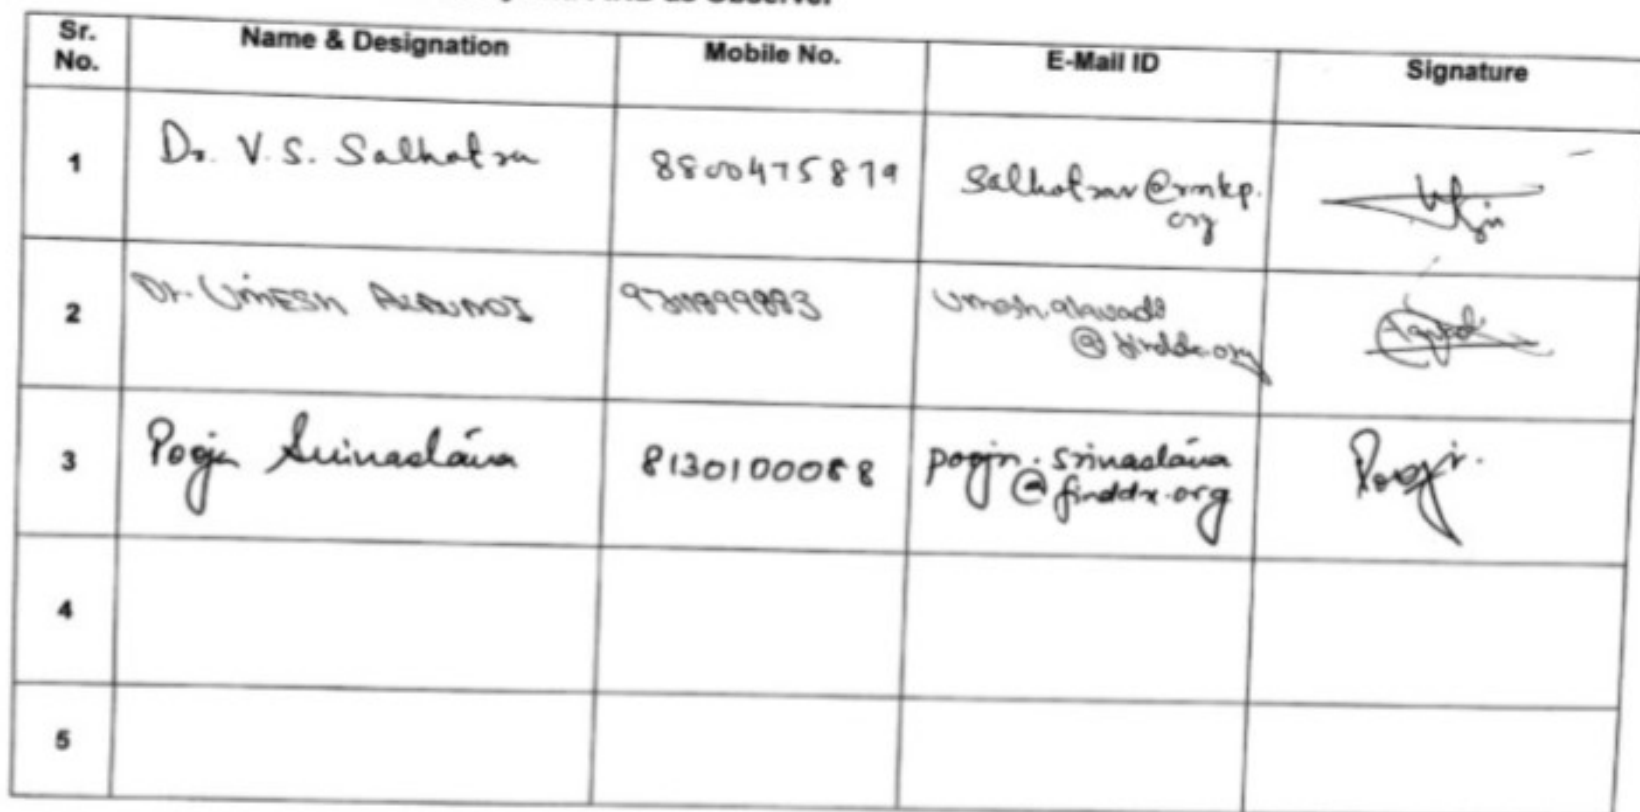 as Observer
Sr. No. Name & Designation Mobile No. E-Mail ID Signature
1 Dr. V. S. Salhotra 8800475879 Salhotrav@rntcp.
org
2 Dr. UMESH ALAVADI umesh.alavadi
@finddx.org
3 Pooja Srivastava 8130100088 pooja.srivastava
@finddx.org Pooja
4
5